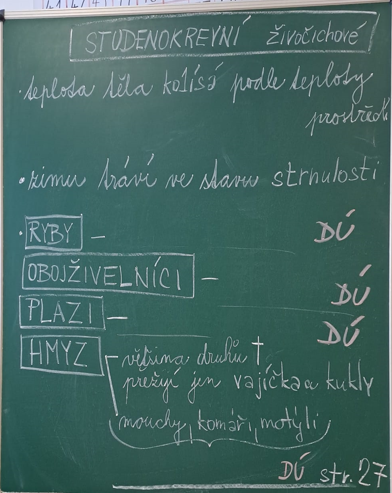 STUDENOKREVNÍ živočichové
• teplota těla kolísá podle teploty
prostředí
• zimu tráví ve stavu strnulosti
• RYBY – DÚ
OBOJŽIVELNÍCI – DÚ
PLAZI – DÚ
HMYZ – většina druhů †
přežijí jen vajíčka a kukly
mouchy, komáři, motýli
DÚ str. 27